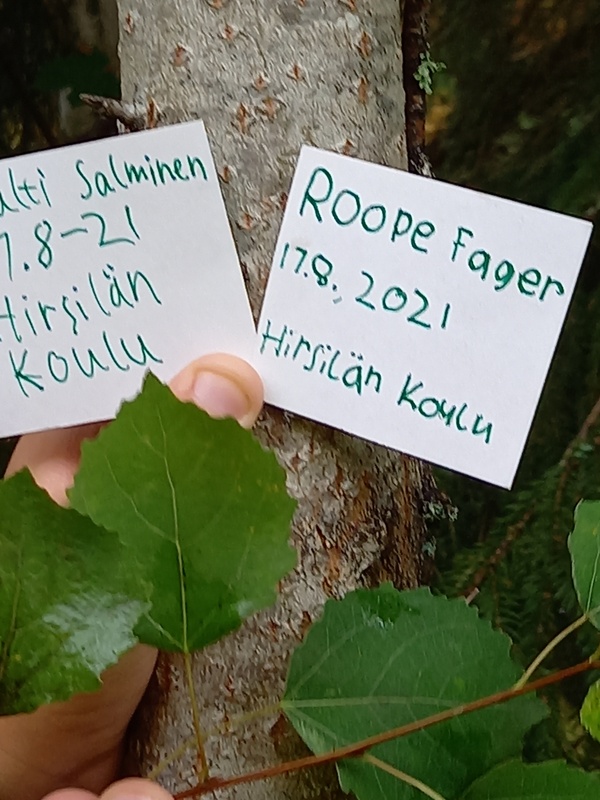 Salminen
7.8-21
Hirsilän
Koulu
Roope Fager
17.8. 2021
Hirsilän Koulu